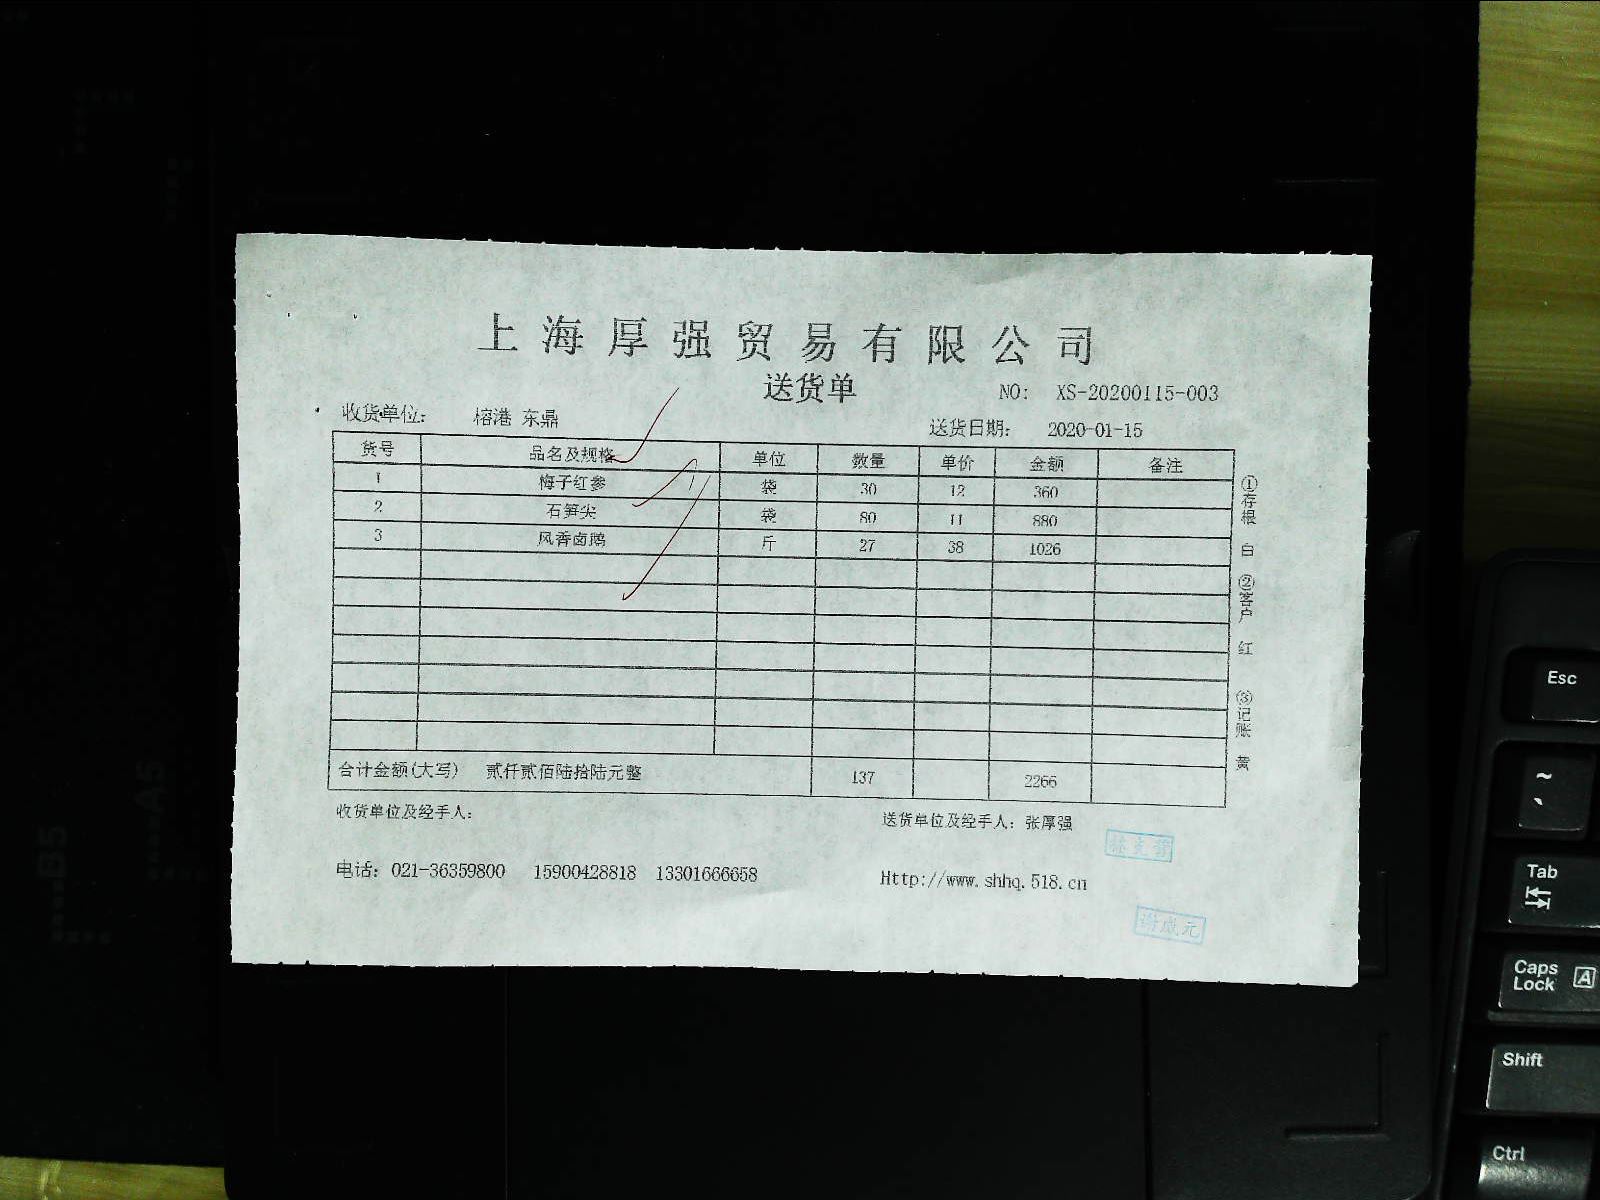 上海厚强贸易有限公司
送货单
NO: XS-20200115-003
收货单位: 榕港 东鼎
送货日期: 2020-01-15
货号 品名及规格 单位 数量 单价 金额 备注
1 梅子红参 袋 30 12 360
2 石笋尖 袋 80 11 880
3 风香卤鹅 斤 27 38 1026
合计金额(大写) 贰仟贰佰陆拾陆元整 137 2266
①存根 白 ②客户 红 ③记账 黄
收货单位及经手人:
送货单位及经手人: 张厚强
电话: 021-36359800 15900428818 13301666658
Http://www.shhq.518.cn
谢成元
B5
A5
Esc
~
`
Tab
Caps Lock A
Shift
Ctrl